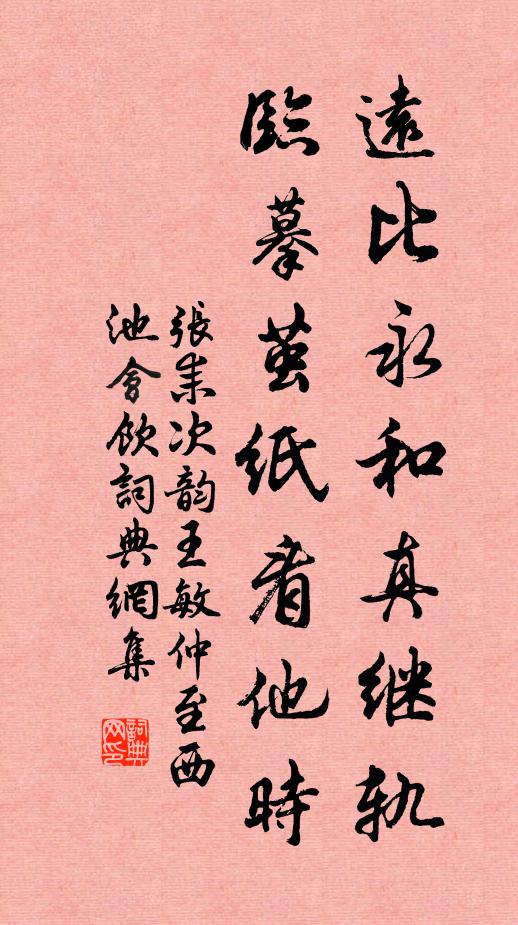 遠比永和真継軌
臨摹茧紙看他時
張耒次韵王敏仲至西
池會飲詞典網集
詞典網印